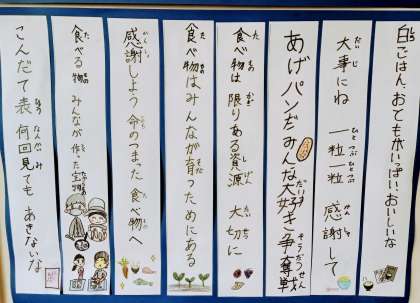 白ごはん、おてもがいっぱい、おいしいな
大事にね 一粒一粒 感謝して
あげパンだ みんな大好き 争奪戦
食べ物は 限りある資源 大切に
食べ物は みんなが育つ ためにある
感謝しよう 命のつまった 食べ物へ
食べる物 みんなが作った 宝物
こんだて表 何回見ても あきないな